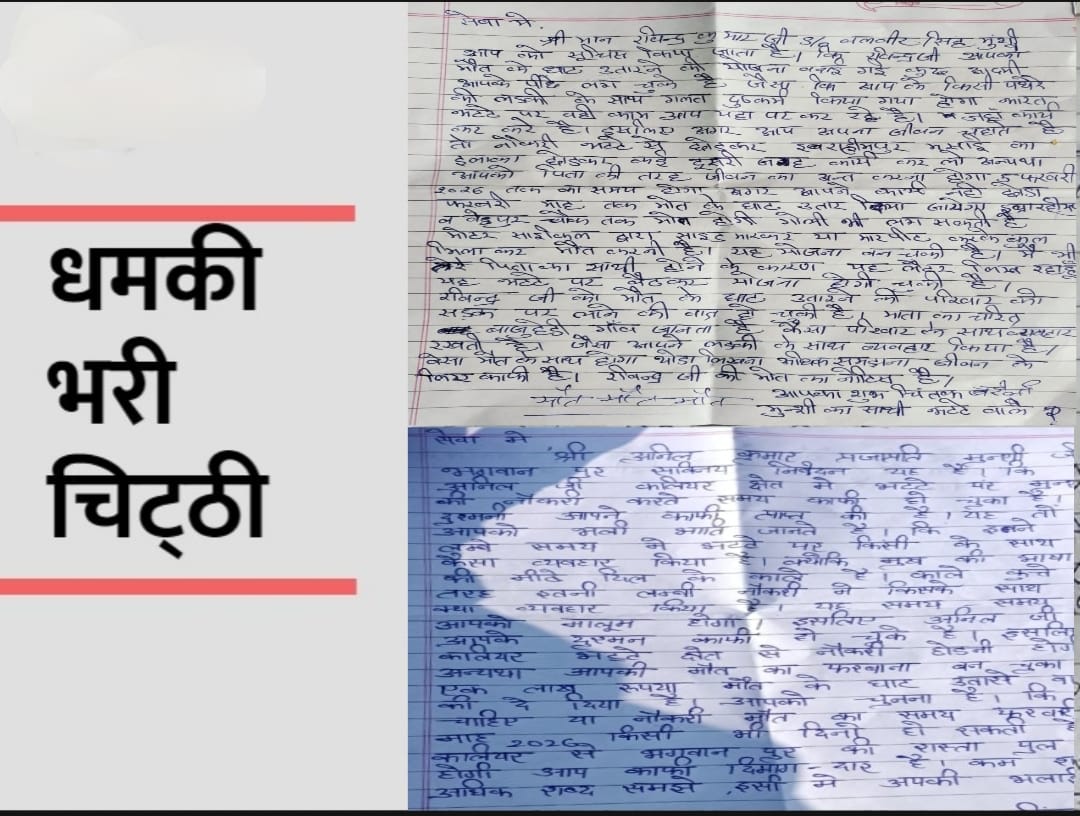 धमकी
भरी
चिट्ठी
सेवा मे,
श्री मान रविन्द्र कुमार जी S/o बलवीर सिंह मुंशी
आप को सूचित किया जाता है। कि रविन्द्र जी आपको
मौत के घाट उतारने की योजना बनाई गई कुछ आदमी
आपके पीछे लग चुके है जैसा कि आप के किसी पथेरे
की लडकी के साथ गलत दुष्कर्म किया गया होगा
भटटे पर वही काम आप यहा पर कर रहे है। जहां कार्य
कर करे है। इसलिए अगर आप अपना जीवन चहाते है
तो नौकरी भटटे से छोडकर इबराहीमपुर मसाई का
इलाका छोडकर कही दूसरी जगह कार्य कर लो अन्यथा
आपको पिता की तरह जीवन का अन्त करना होगा 5 फरवरी
2026 तक का समय होगा अगर आपने काम नही छोडा
फरवरी माह तक मौत के घाट उतार दिया जायेगा
व बेडपुर चौक तक मौत होगी गोली भी लग सकती है
मोटर साईकल द्वारा साइड मारकर या मार पीट करके कुल
मिला कर मौत करनी है। यह योजना बन चुकी है। मै भी
तेरे पिता का साथी होने के कारण यह लैटर लिख रहा हूं
यह भटटे पर बैठकर योजना होगी चुकी है।
रविन्द्र जी को मौत के घाट उतारने की परिवार को
सडक पर लाने की बात हो चुकी है। माता का चरित्र
बाजुहेडी गांव जानता है कैसा परिवार के साथ व्यवहार
रखती है। जैसा आपने लडकी के साथ व्यवहार किया है।
वैसा मौत के साथ होगा थोडा लिखना अधिक समझना जीवन के
लिए काफी है। रविन्द्र जी की मौत का नोटिस है।
मौत-मौत-मौत आपका शुभ चिंतक
मुन्शी का साथी भटटे वाले
सेवा मे
श्री अनिल कुमार प्रजापति मुन्शी जी
भगवान पुर सविनय निवेदन यह है। कि
अनिल जी कलियर क्षेत्र मे भटटे पर
की नौकरी करते समय काफी हो चुका है।
दुश्मनी आपने काफी प्राप्त की है। यह तो
आपको भली भाति जानते है। कि इतने
लम्बे समय मे भटटे पर किसी के साथ
कैसा व्यवहार किया है। क्योकि मुख की भाषा
की मीठे दिल के काले है। काले कुत्ते
तरह इतनी लम्बी नौकरी मे किसके साथ
क्या व्यवहार किया है। यह समय समय
आपको मालूम होगा। इसलिए अनिल जी
आपके दुश्मन काफी हो चुके है।
कलियर भटटे क्षेत्र से नौकरी छोडनी
अन्यथा आपकी मौत का फरवाना बन चुका
एक लाख रूपया मौत के घाट उतारने
की दे दिया है। आपको चुनना है। कि
चाहिए या नौकरी मौत का समय
माह 2026 किसी भी दिनो हो सकती है
कलियर से भगवान पुर की रास्ता पुल
होगी आप काफी दिमाग-दार है। कम
अधिक शब्द समझे इसी मे अपकी